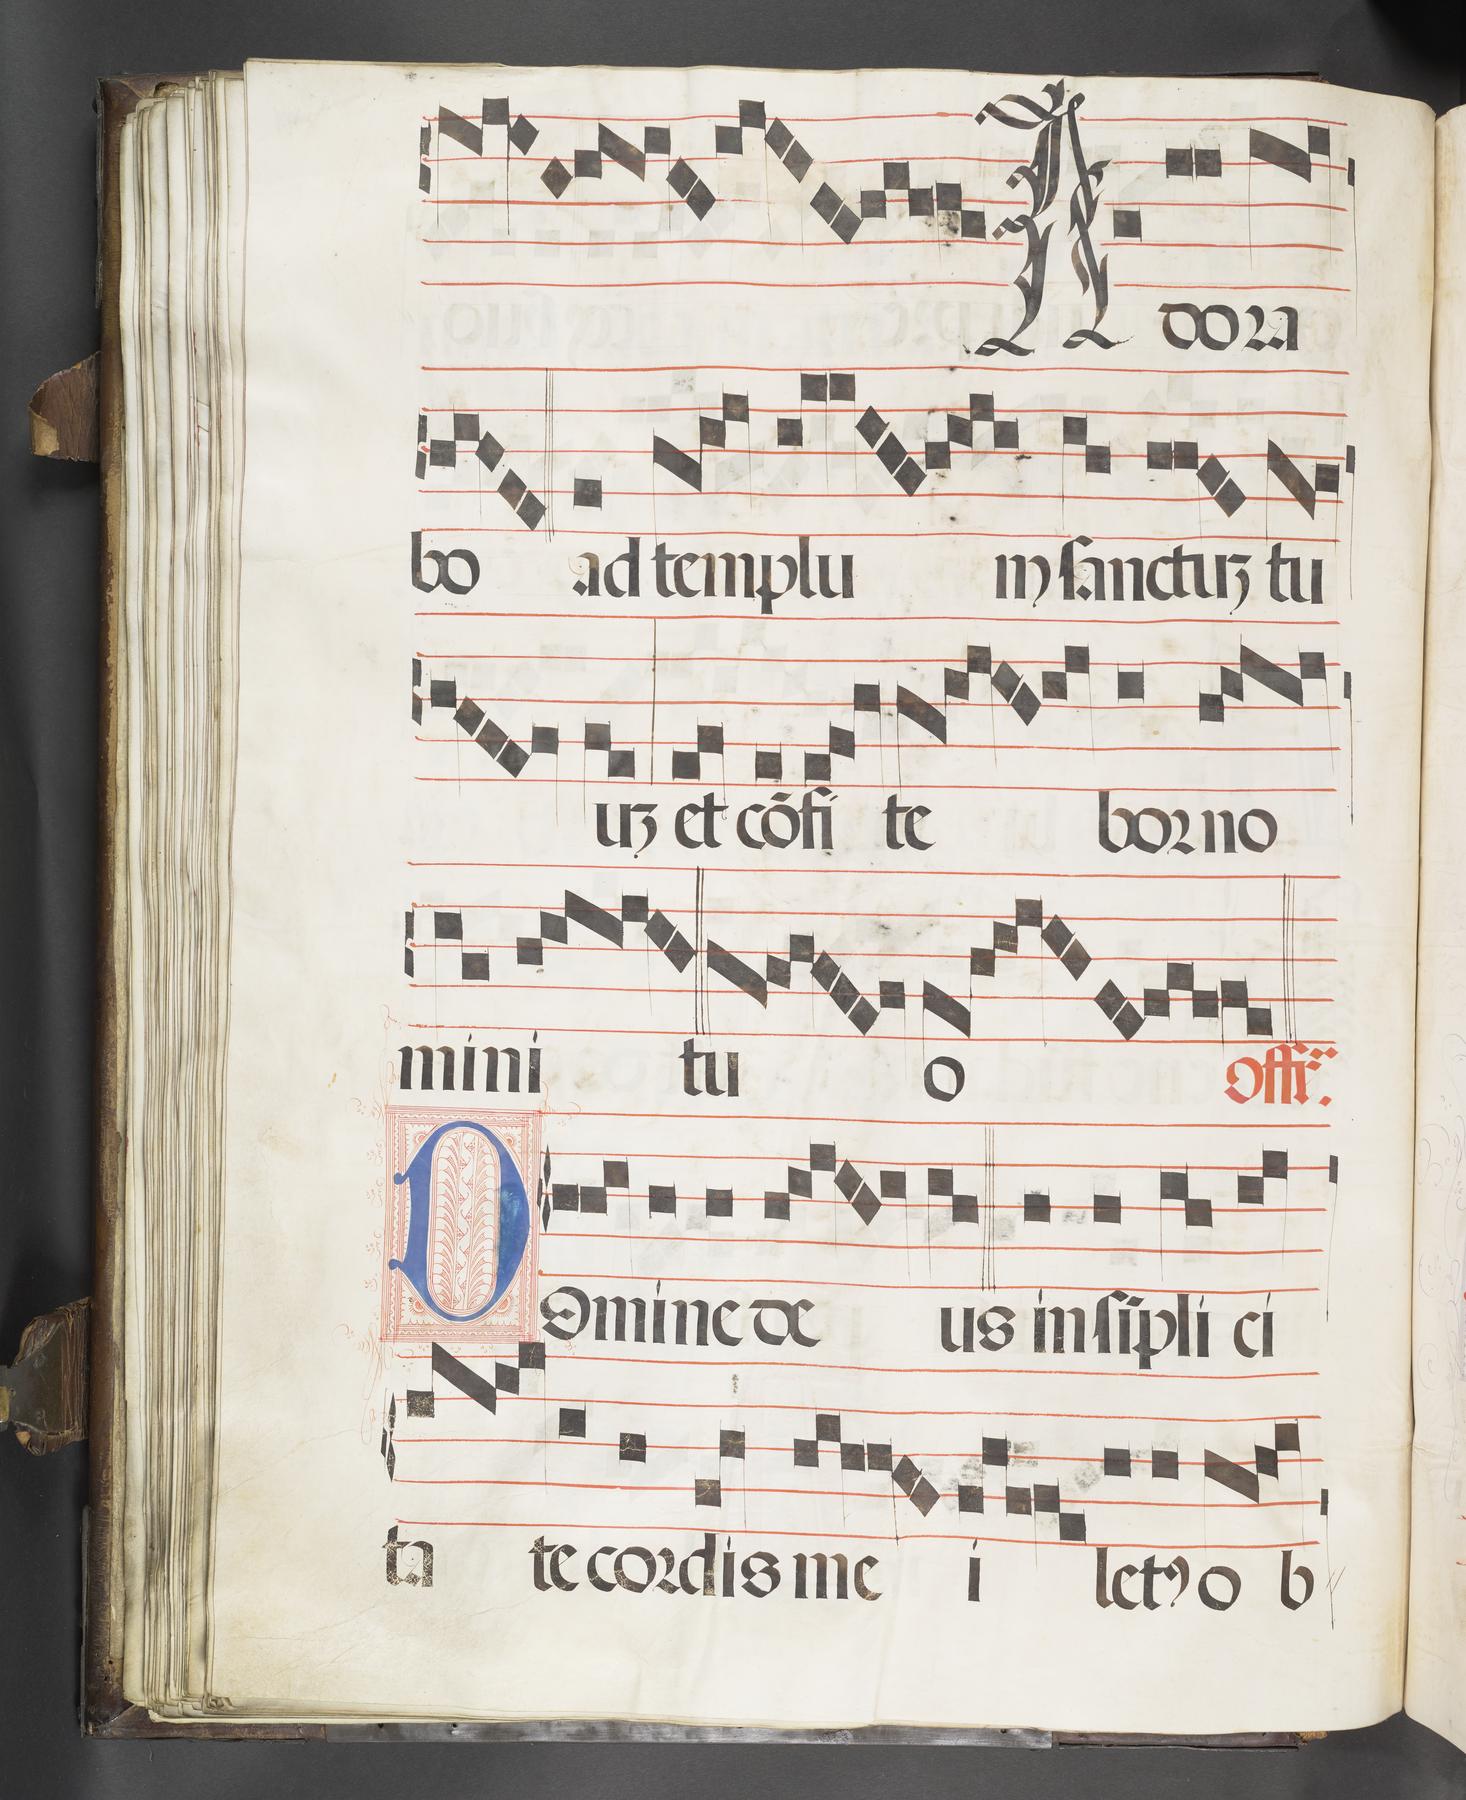 Adora
bo ad templu in sanctuʒ tu
uʒ et cõfi te bor no
mini tu o Offr̃.
Domine de us in sĩpli ci
ta te cordis me i letꝰ o b